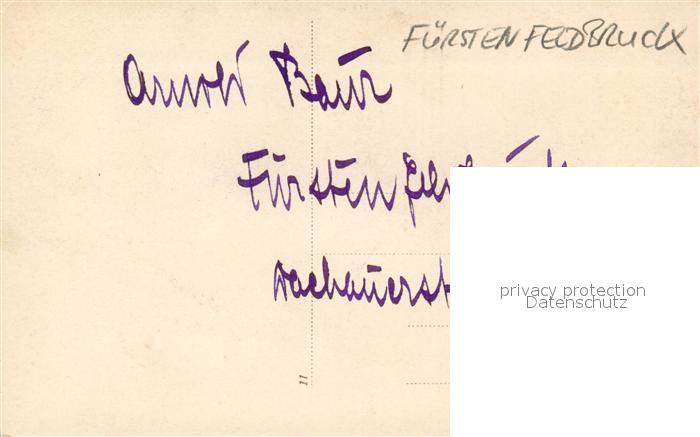 FÜRSTENFELDBRUCK
Arnold Baur
Fürstenfeldbruck
Dachauerst
privacy protection
Datenschutz
11